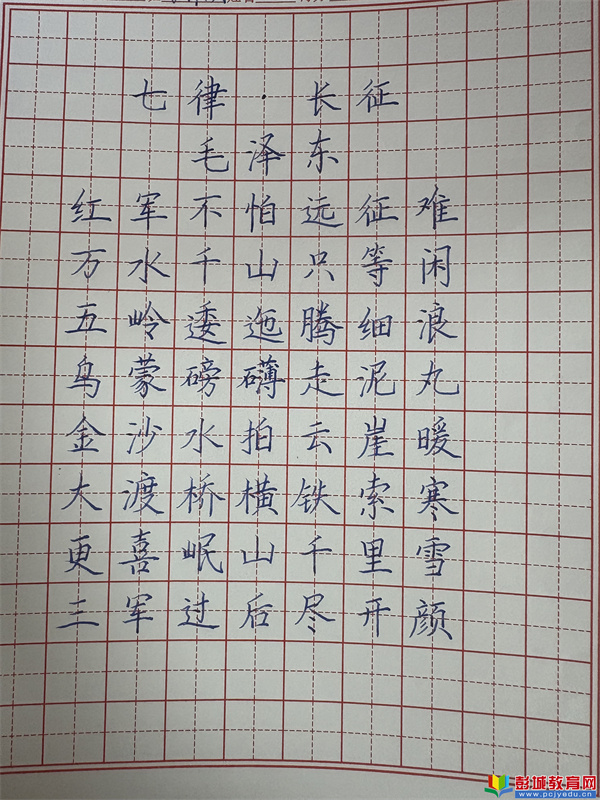 七律·长征
毛泽东
红军不怕远征难
万水千山只等闲
五岭逶迤腾细浪
乌蒙磅礴走泥丸
金沙水拍云崖暖
大渡桥横铁索寒
更喜岷山千里雪
三军过后尽开颜
彭城教育网
www.pcjyedu.cn